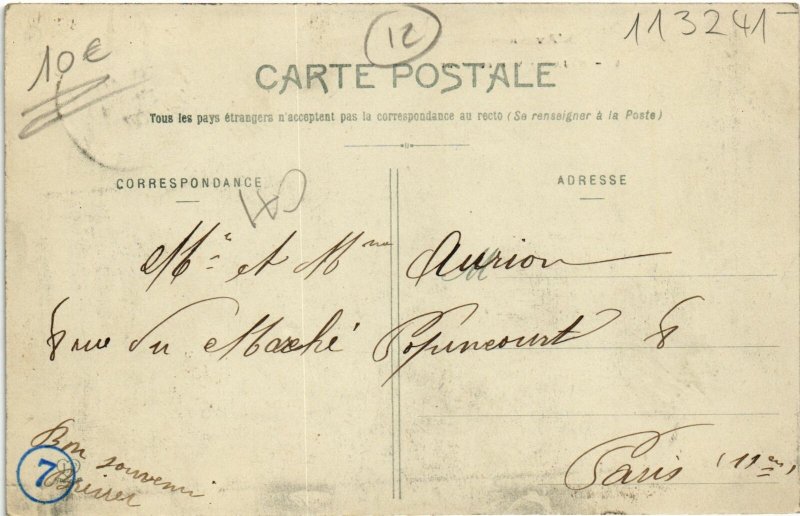 10€
12
113241
CARTE POSTALE
Tous les pays étrangers n'acceptent pas la correspondance au recto (Se renseigner à la Poste)
CORRESPONDANCE
ADRESSE
Mr et Mme Aurion
8 rue du Marché Popincourt 8
Paris (11me)
Bon souvenir
7